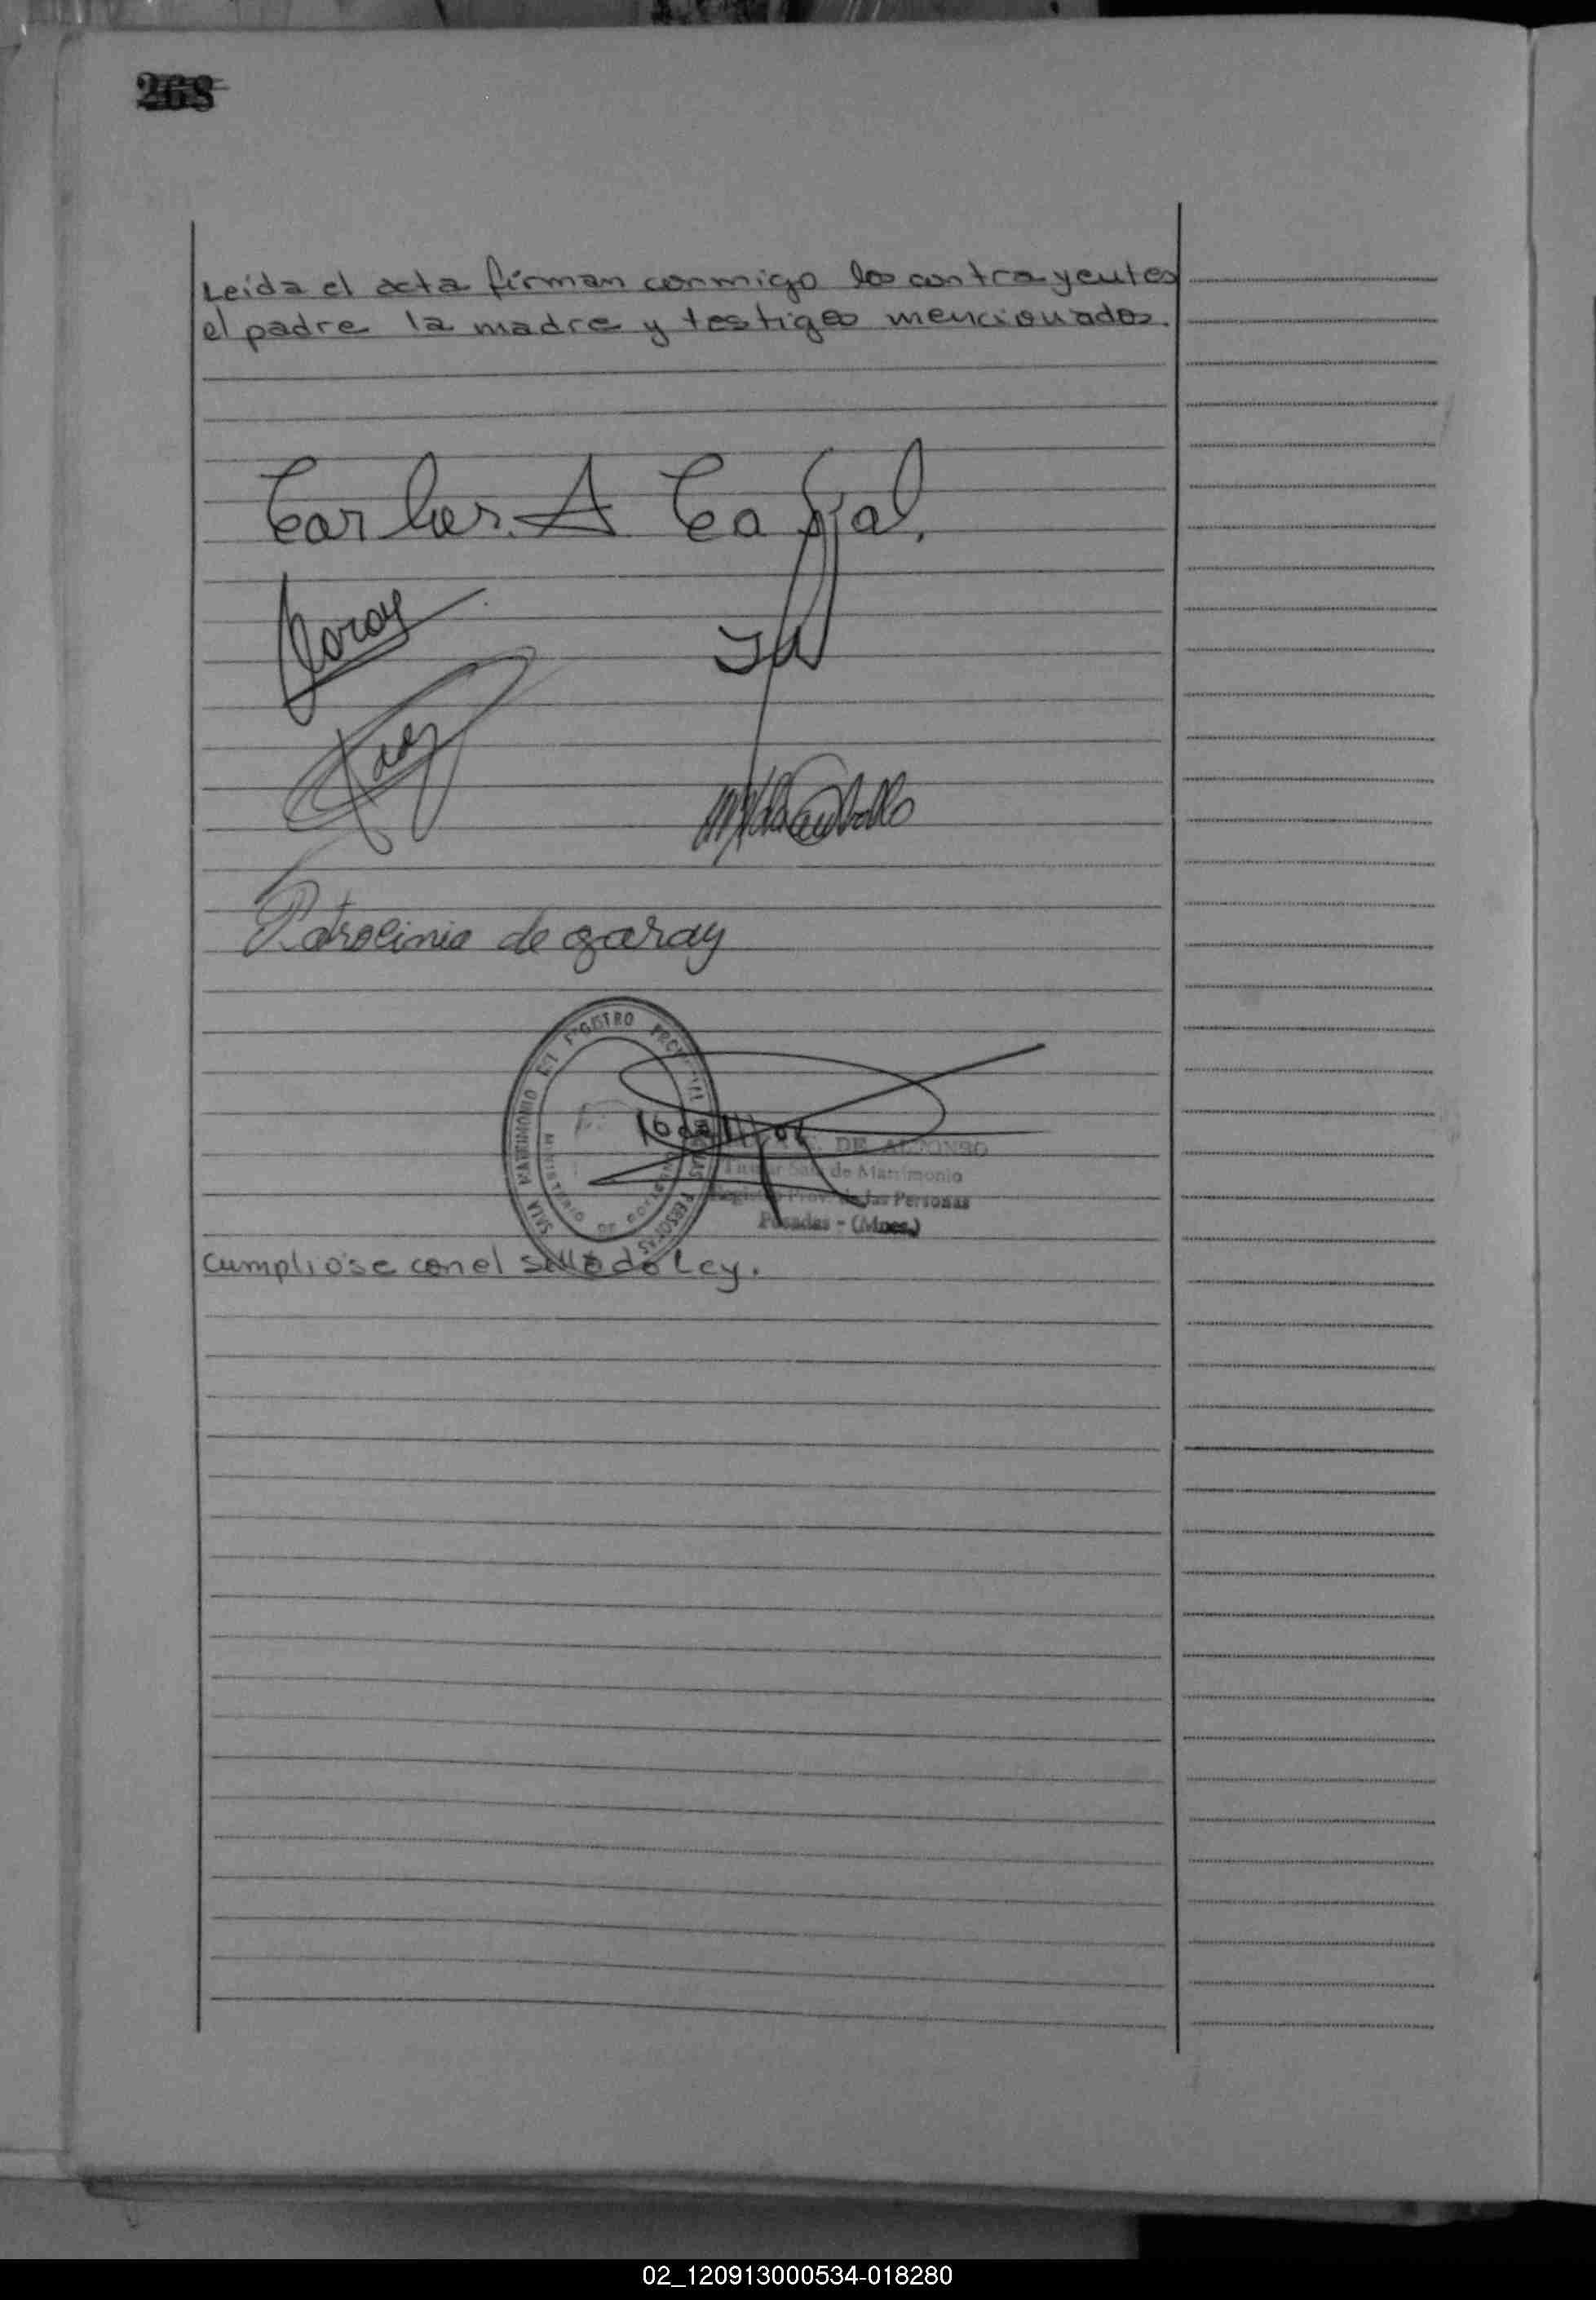 268
Leída el acta firman conmigo los contrayentes
el padre la madre y testigos mencionados.
Carlos. A
Garay
Patrocinia de garay
SALA MATRIMONIO DEL REGISTRO PROVINCIAL DE LAS PERSONAS
MINISTERIO DE GOBIERNO
DE ALFONSO
Titular Sala de Matrimonio
Registro Prov. de las Personas
Posadas - (Mnes.)
Cumplióse con el sellado Ley.
02_120913000534-018280